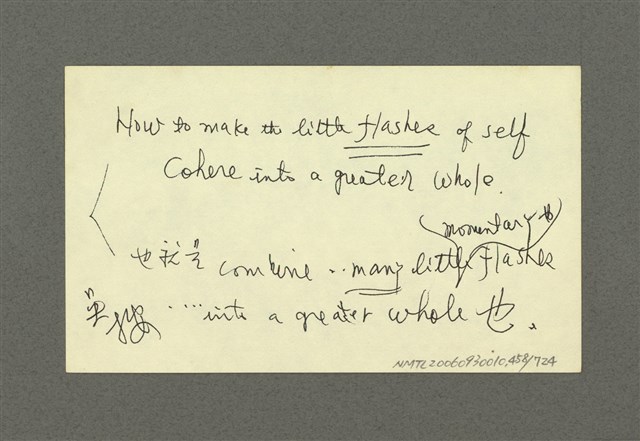 How to make the little flashes of self
cohere into a greater whole.
(momentary 的)
也就是 combine .. many little flashes
..... into a greater whole 也.
NMTL20060930010.458/724